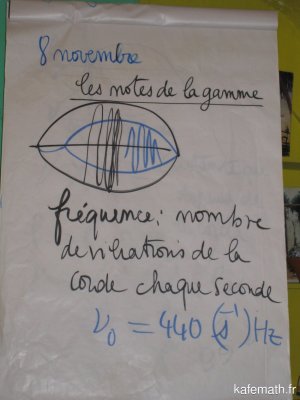 8 novembre
les notes de la gamme
fréquence : nombre
de vibrations de la
corde chaque seconde
ν₀ = 440 (s⁻¹) Hz
kafemath.fr